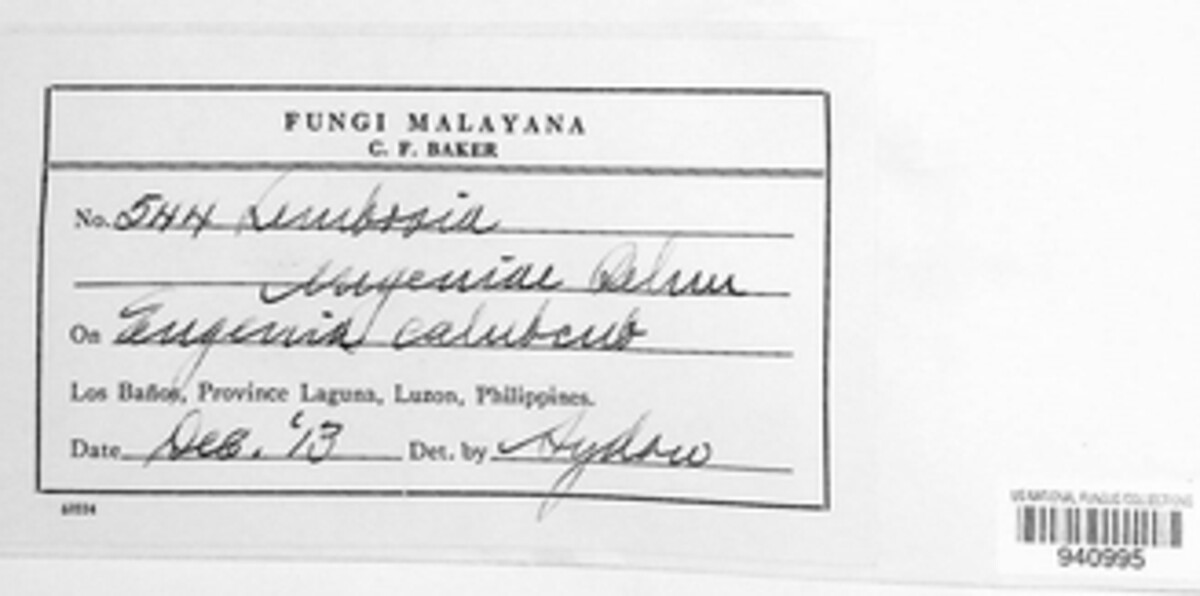 FUNGI MALAYANA
C. F. BAKER
No. 544 Lembosia
Eugeniae Rehm
On Eugenia calubcub
Los Baños, Province Laguna, Luzon, Philippines.
Date Dec. '13 Det. by Sydow
US NATIONAL FUNGUS COLLECTIONS
940995